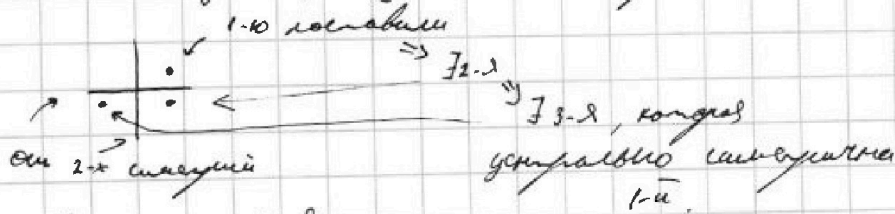 1-ю поставили
⇒ ∃ 2-я
⇒ ∃ 3-я, которая
центрально симметрична
1-й.
оси 2-х симметрий